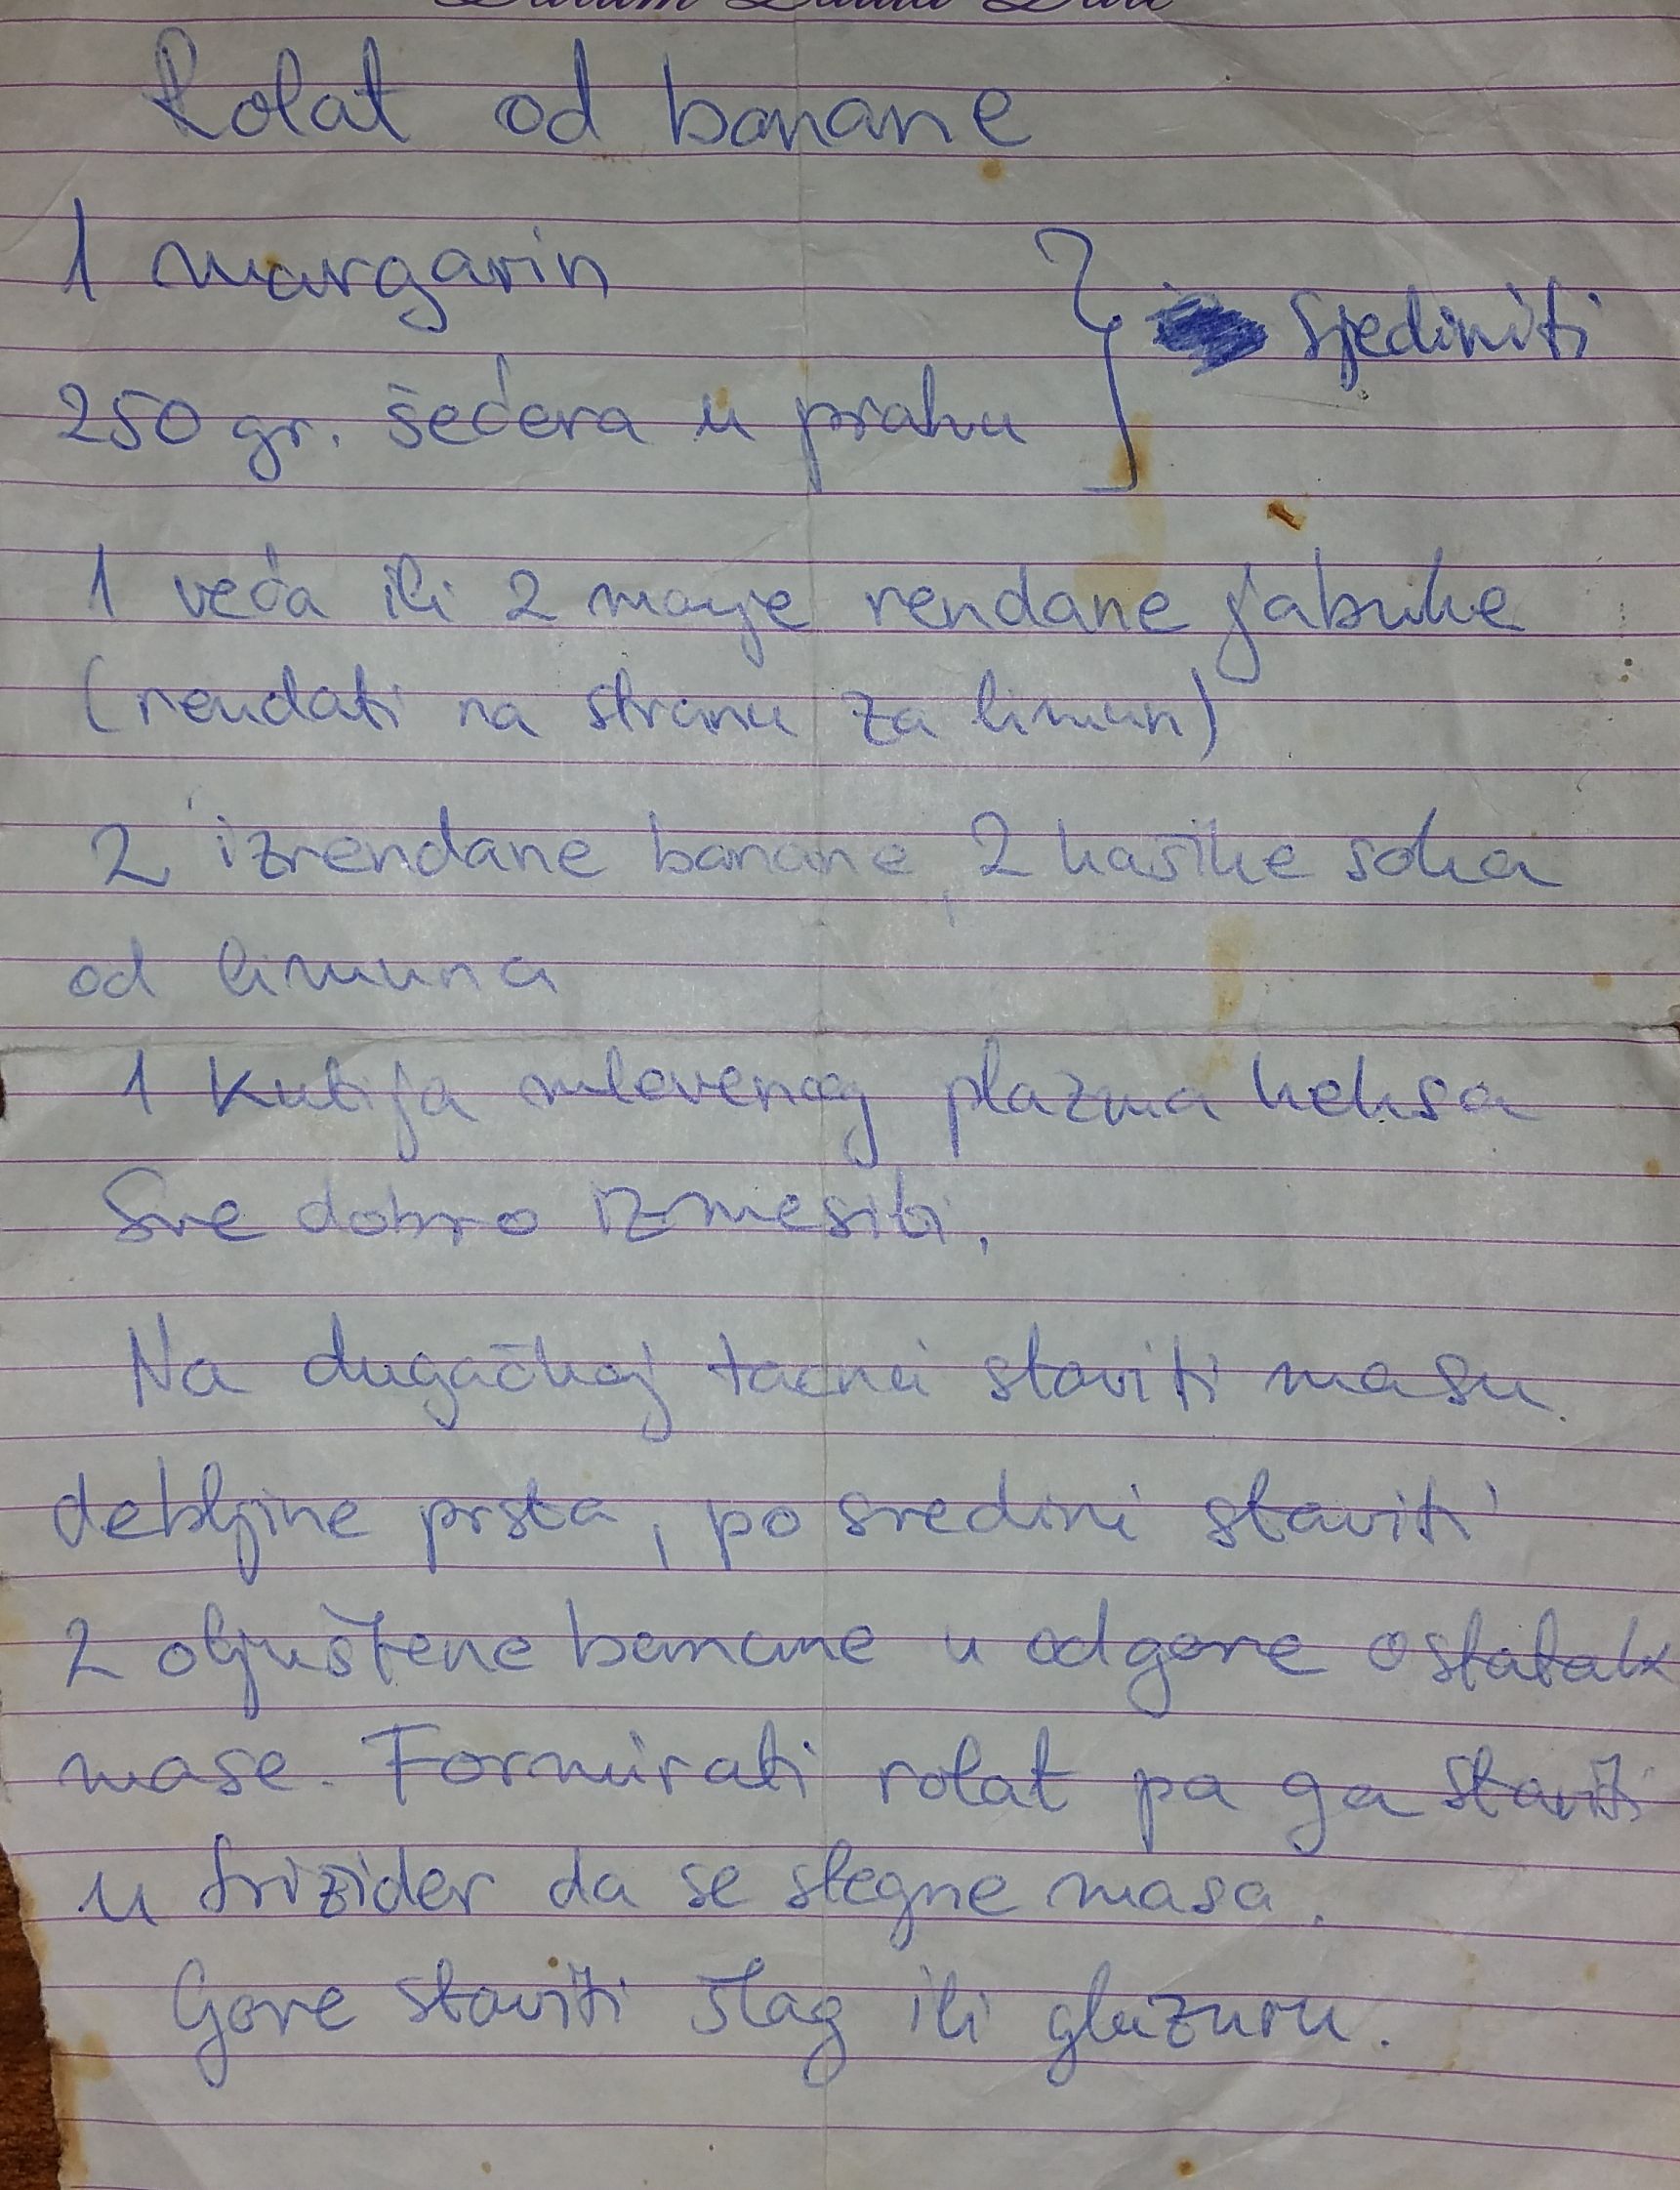 Rolat od banane
1 margarin
sjediniti
250 gr. šećera u prahu
1 veća ili 2 manje rendane jabuke
(rendati na stranu za limun)
2 izrendane banane, 2 kašike soka
od limuna
1 kutija mlevenog plazma keksa
Sve dobro izmesiti.
Na dugačkoj tacni staviti masu
debljine prsta, po sredini staviti
2 oljuštene banane u odgore ostatak
mase. Formirati rolat pa ga staviti
u frižider da se stegne masa.
Gore staviti šlag ili glazuru.